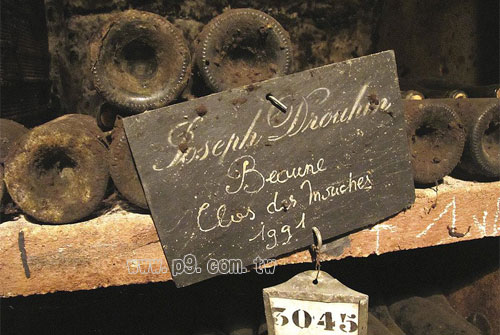 Joseph Drouhin
Beaune
Clos des Mouches
1991
www.p9.com.tw
3045